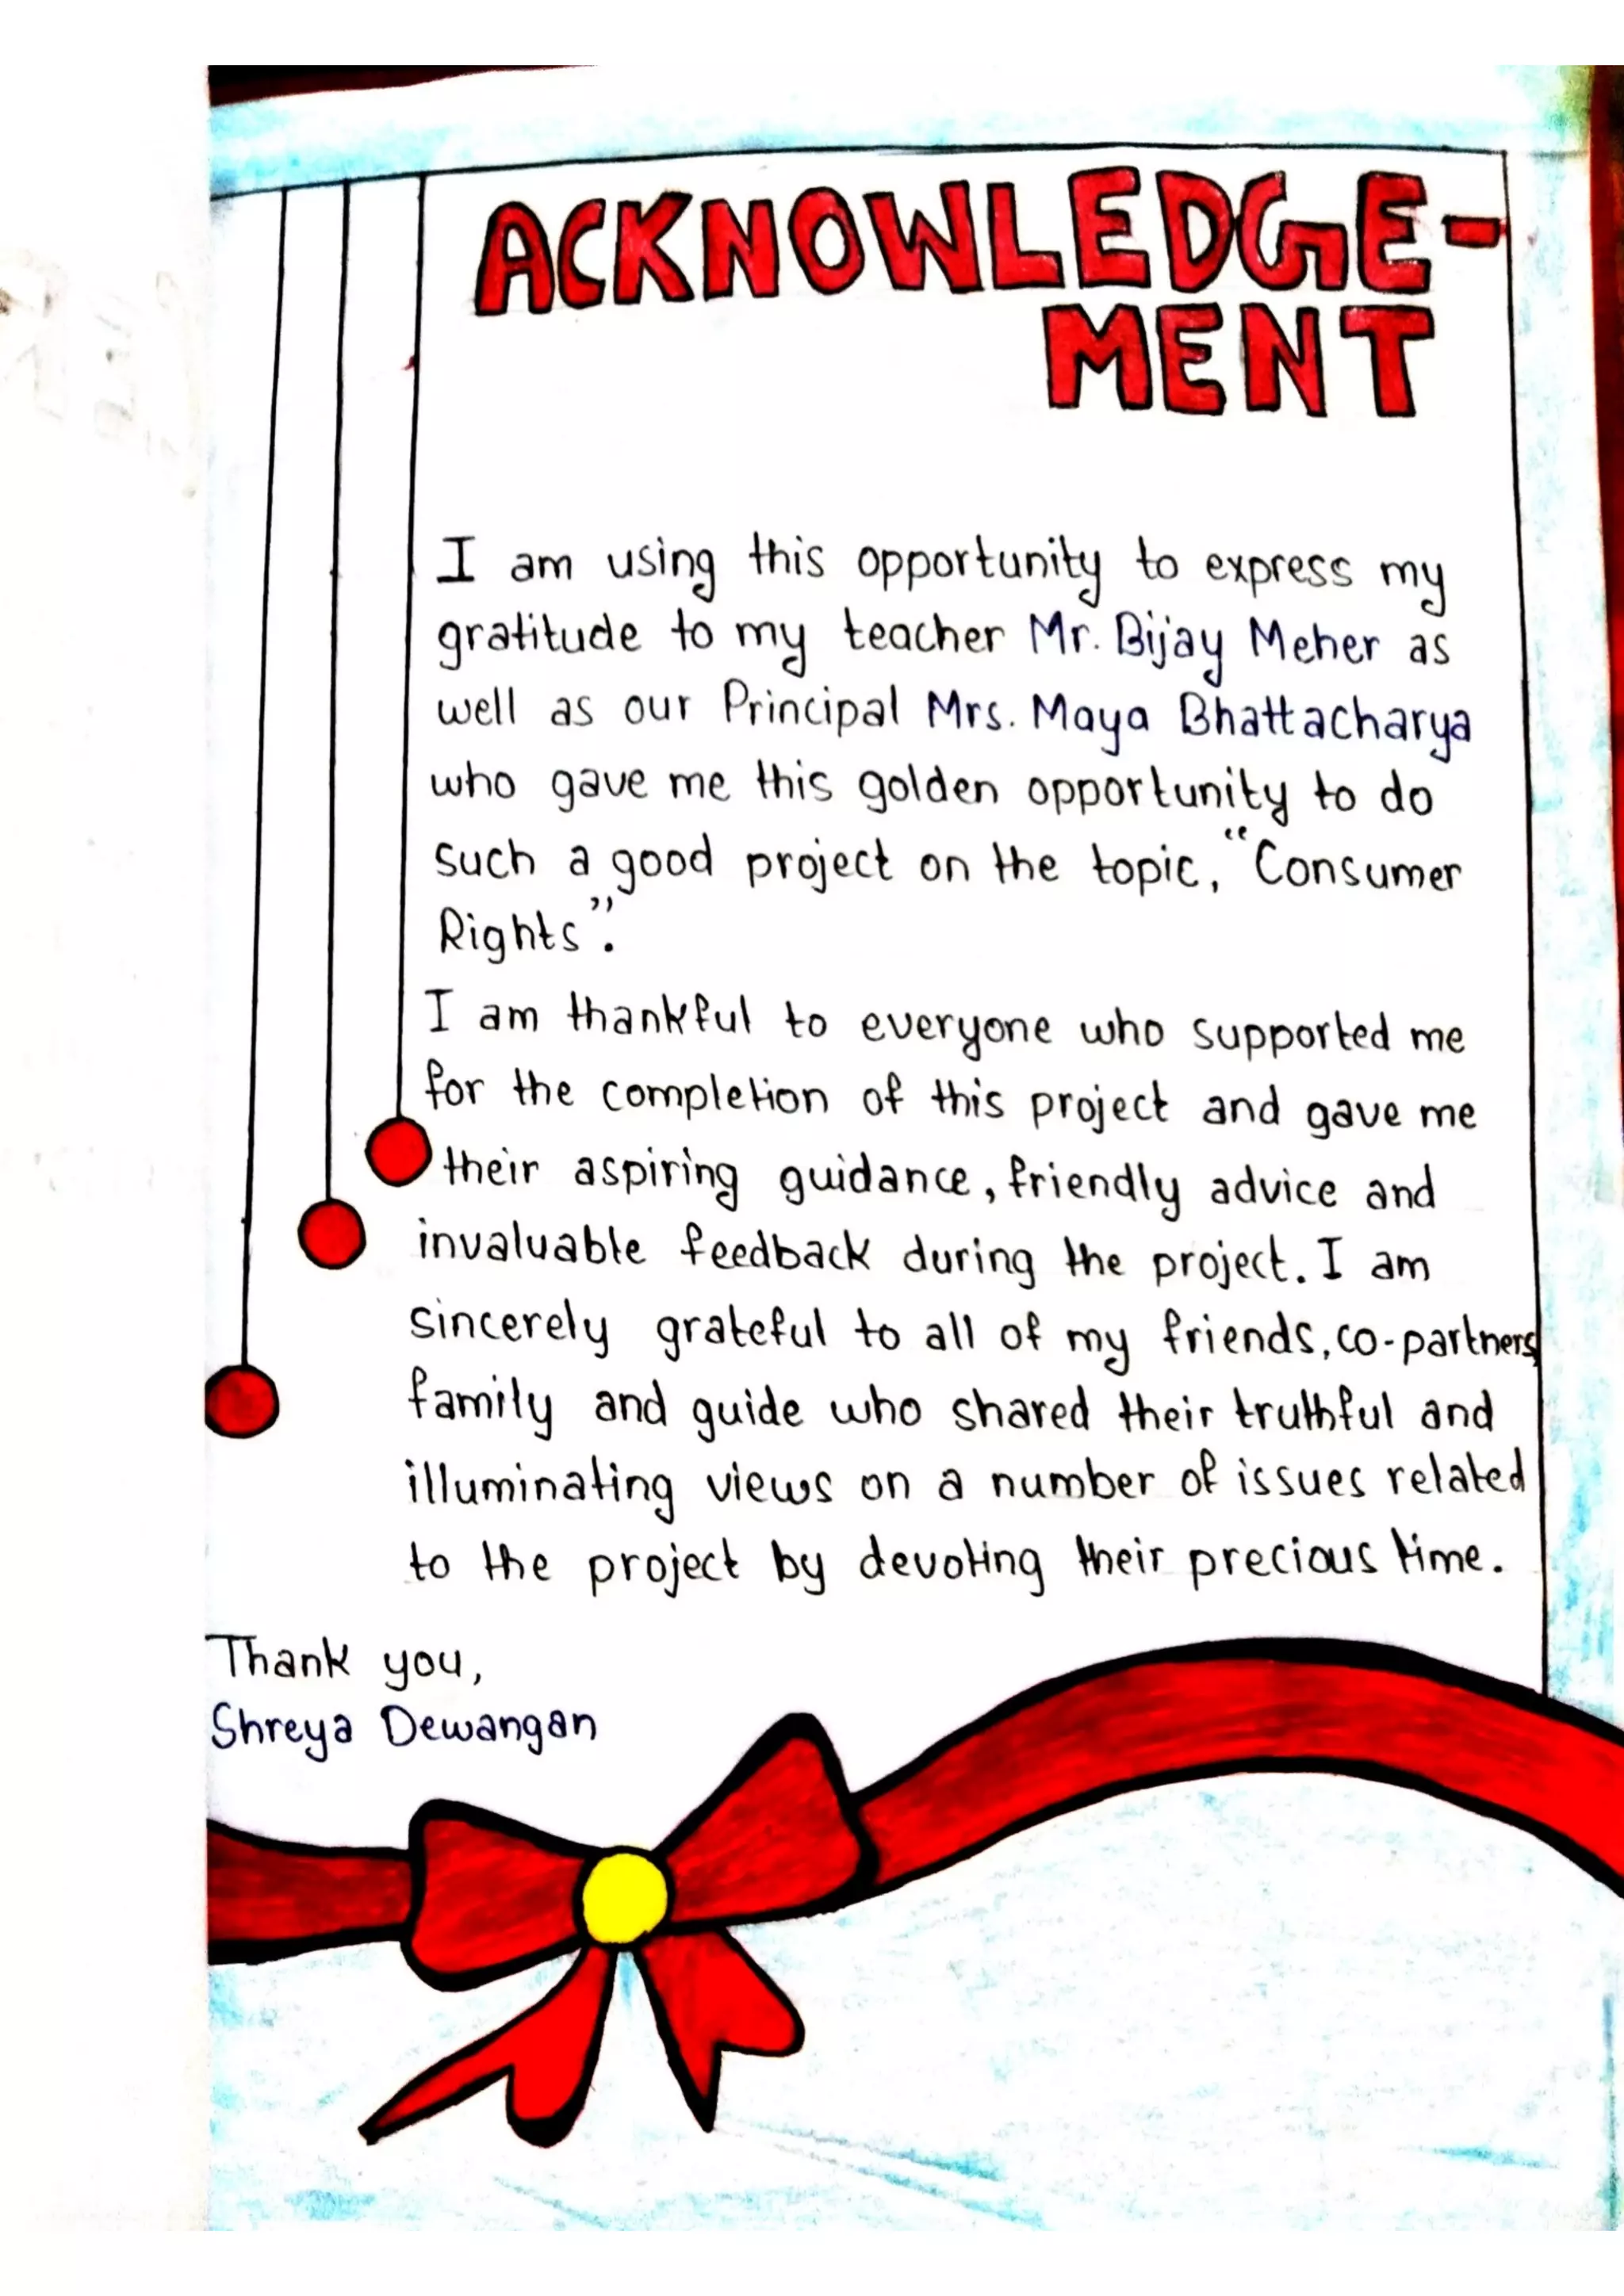 ACKNOWLEDGE-
MENT
I am using this opportunity to express my
gratitude to my teacher Mr. Bijay Meher as
well as our Principal Mrs. Maya Bhattacharya
who gave me this golden opportunity to do
such a good project on the topic, "Consumer
Rights".
I am thankful to everyone who supported me
for the completion of this project and gave me
their aspiring guidance, friendly advice and
invaluable feedback during the project. I am
sincerely grateful to all of my friends, co-partners,
family and guide who shared their truthful and
illuminating views on a number of issues related
to the project by devoting their precious time.
Thank you,
Shreya Dewangan